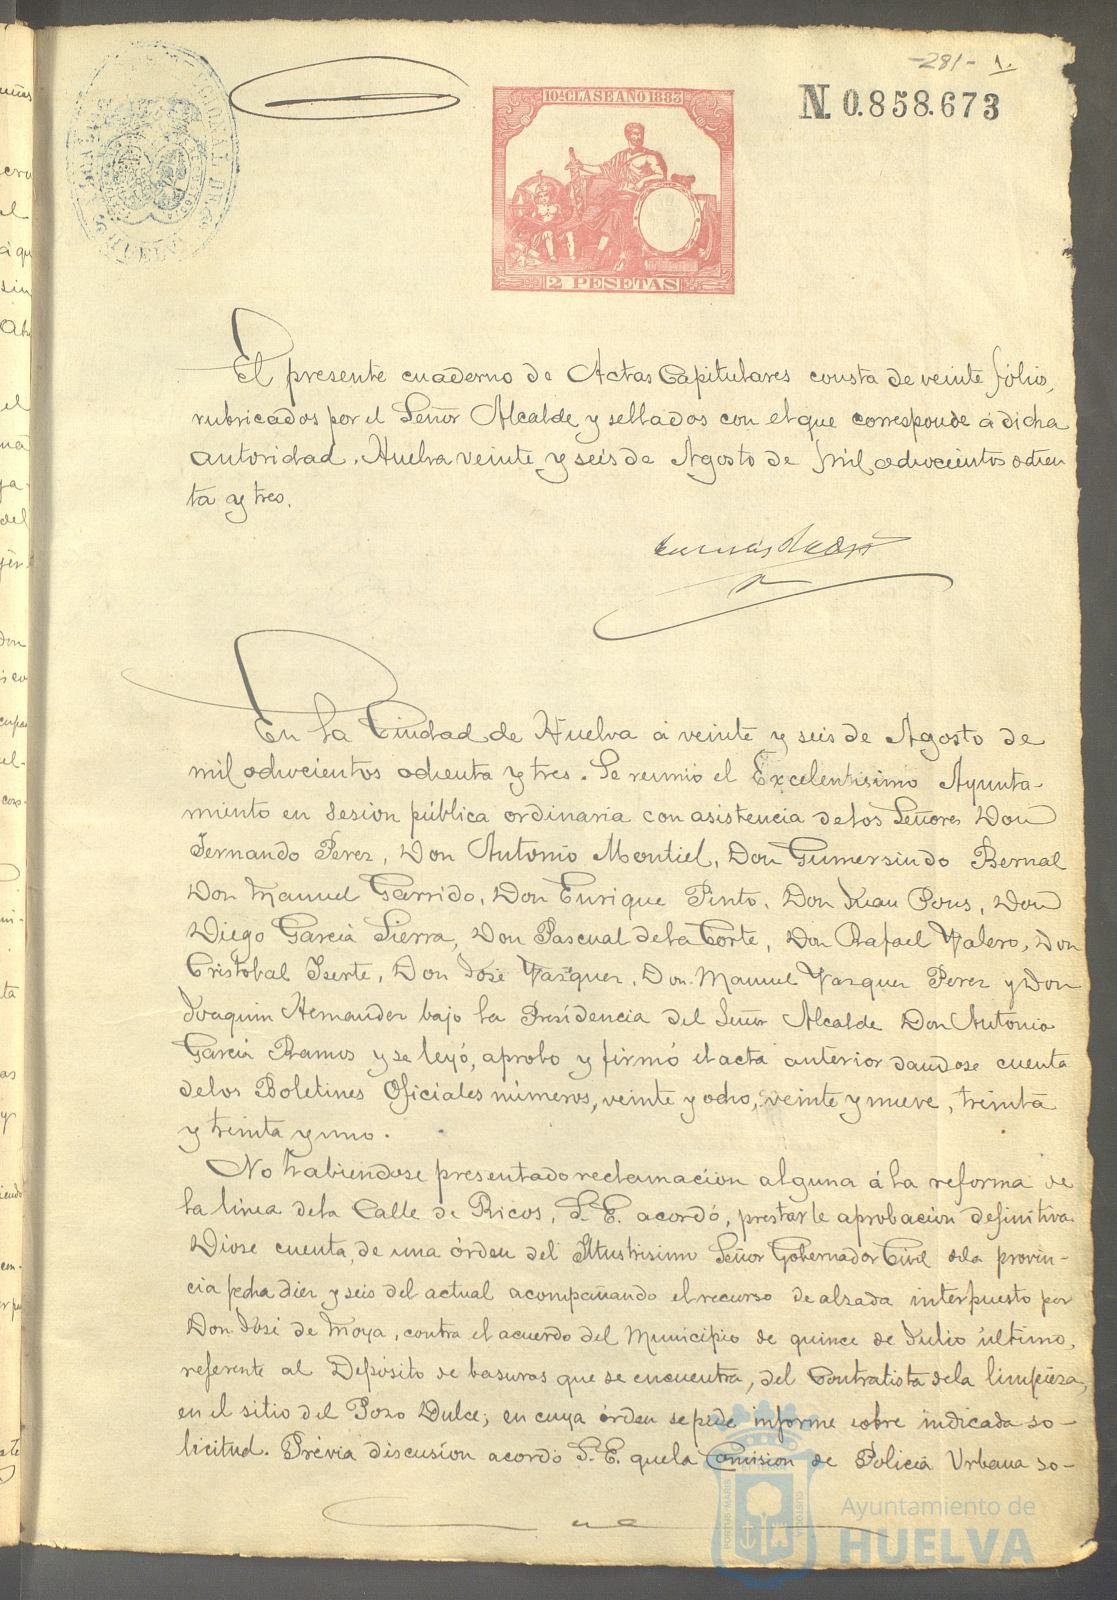 -281- 1.
10ª CLASE AÑO 1883
N. 0.858.673
2 PESETAS
El presente cuaderno de Actas Capitulares consta de veinte folios,
rubricados por el Señor Alcalde y sellados con el que corresponde á dicha
autoridad. Huelva veinte y seis de Agosto de mil ochocientos ochen
ta y tres.
En la Ciudad de Huelva á veinte y seis de Agosto de
mil ochocientos ochenta y tres. Se reunió el Excelentisimo Ayunta-
miento en sesion pública ordinaria con asistencia de los Señores Don
Fernando Perez, Don Antonio Montiel, Don Gumersindo Bernal
Don Manuel Garrido, Don Enrique Pinto, Don Juan Pons, Don
Diego Garcia Sierra, Don Pascual de la Corte, Don Rafael Valero, Don
Cristobal Iserte, Don José Vazquez, Don Manuel Vazquez Perez y Don
Joaquin Hernandez bajo la Presidencia del Señor Alcalde Don Antonio
García Ramos y se leyó, aprobó y firmó el acta anterior dandose cuenta
de los Boletines Oficiales números, veinte y ocho, veinte y nueve, treinta
y treinta y uno.
No habiendose presentado reclamacion alguna á la reforma de
la línea de la Calle de Ricos, S. E. acordó, prestarle aprobacion definitiva.
Diose cuenta de una órden del Ilustrisimo Señor Gobernador Civil de la provin-
cia fecha diez y seis del actual acompañando el recurso de alzada interpuesto por
Don José de Moya, contra el acuerdo del Municipio de quince de Julio último,
referente al Depósito de basuras que se encuentra, del Contratista de la limpieza,
en el sitio del Pozo Dulce; en cuya órden se pide informe sobre indicada so-
licitud. Prévia discusion acordó S. E. que la Comision de Policia Urbana so-
PORTUS MARIS
CUSTODIA
Ayuntamiento de
HUELVA